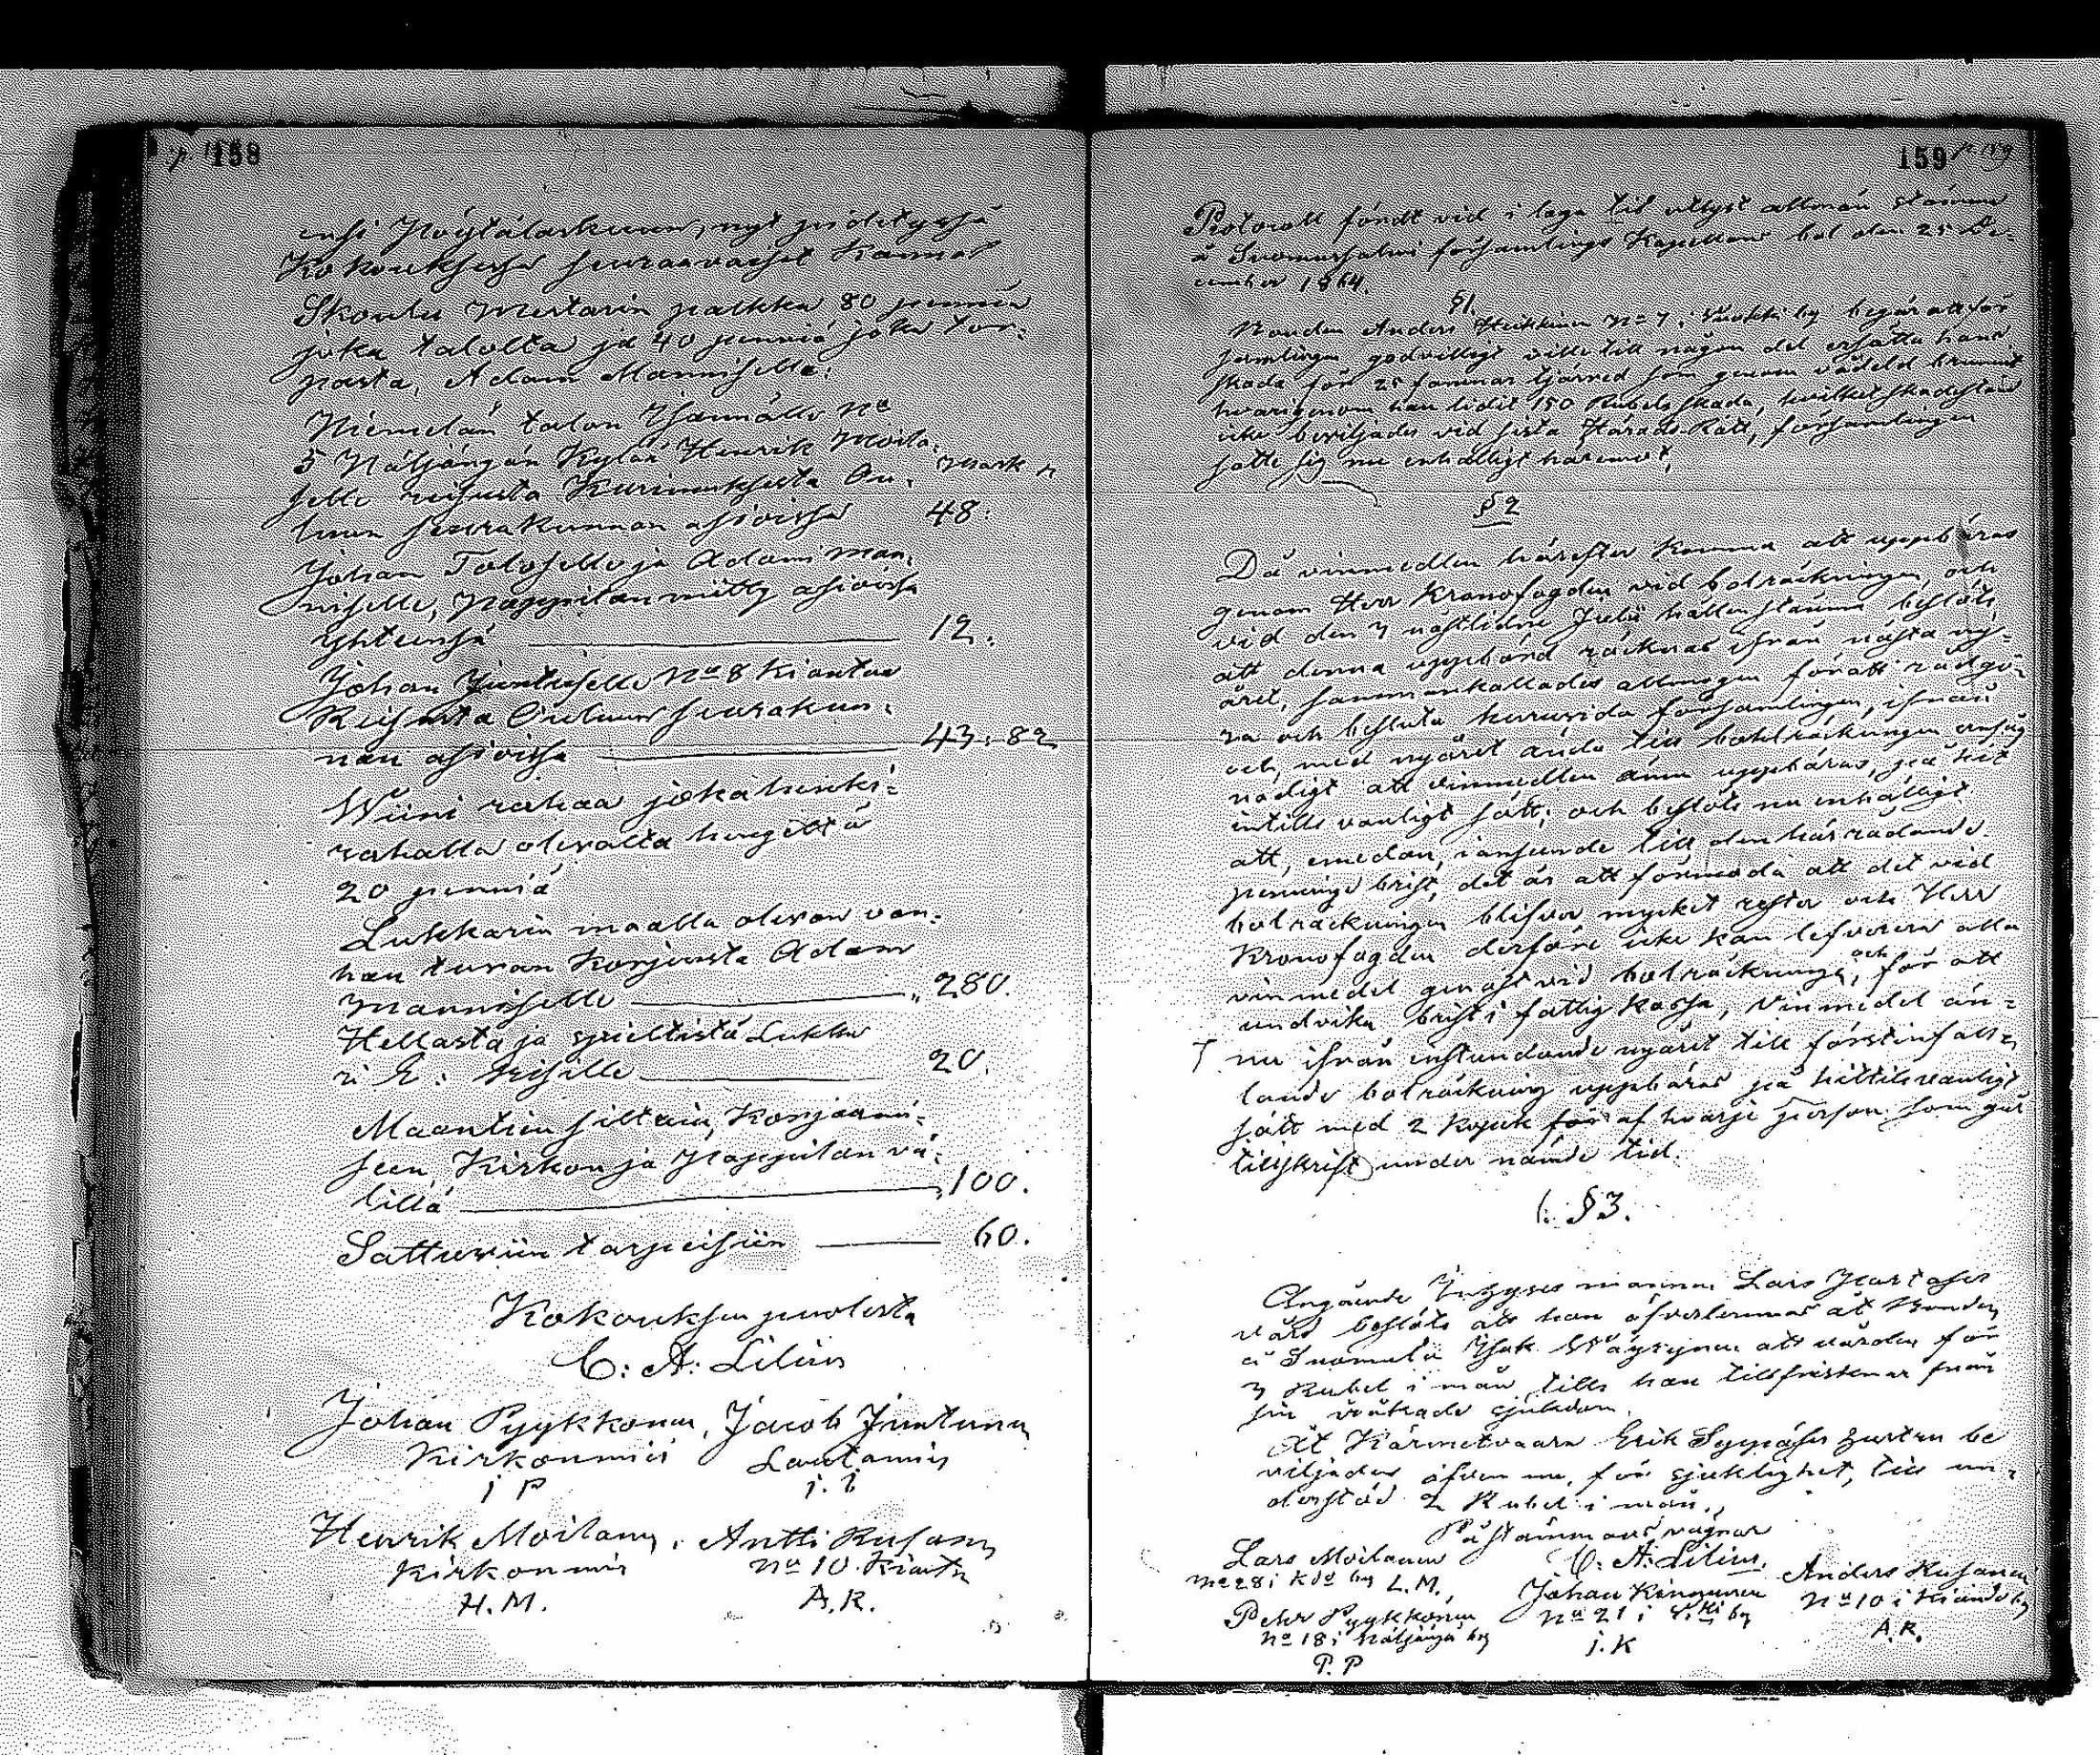 158
ensi Nögtäläskuun, nyt pidetyssä
Kokouksessa seuraavaiset Kannot
Skoulu Mestarin palkka 80 penniä
joka talolta ja 40 penniä joka tor-
pasta, Adam Manniselle.
Niemelän talon Isännälle No
5 Näljängän Kylän Henrik Moila-
selle reisusta Kurimuksesta Ou- Mark p
luun seurakunnan asioissa 48.
Johan Toloselle ja Adam Man-
niselle, Pappilan mitty asioissa
yhteensä 12.
Johan Juntuselle No 8 Kiantaa
Reisusta Ouluun seurakun-
nan asioissa 43,82
Wiini rahaa joka henki-
rahalla olevalta hengeltä
20 penniä
Lukkarin maalla olevan van-
han tuvan Korjuusta Adam
Manniselle „ 280.
Hellasta ja spieltistä Lukka-
ri E: Kriselle 20.
Maantien siltain, Korjaami-
seen, Kirkon ja Pappilan vä-
lillä 100.
Sattuviin tarpeisiin 60.
Kokouksen puolesta
C: A: Lilius
Johan Pyykkönen, Jacob Juntunen
Kirkonmies Lautamies
J P J. J
Henrik Moilanen, Antti Kusanen
Kirkonmies No 10. Kianta
H. M. A. K.
159 p 159
Protocoll fördt vid i laga tid utlyst allmän stämma
å Suomussalmi församlings Kapellans bol den 25 De-
cember 1864.
§1.
Bonden Anders Heikkinen No 7 i Vuokki by begär att för-
samlingen godvilligt ville till någon del ersätta hans
skada för 25 famnar tjärved som genom vådeld brunnit
hvarigenom han lidit 150 Rubels skada, hvilket skadestånd
icke beviljades vid sista Härads-Rätt, församlingen
satte sig nu enhälligt häremot.
§2
Då vinmedlen härefter komma att uppbäras
genom Herr Kronofogden vid bolräkningen, och
vid den 3 nästlidne Julii hållen stämma beslöts
att denna uppbörd räknas ifrån nästa ny-
året, sammankallades allmogen för att rådgö-
ra och besluta huruvida församlingen, ifrån
och med nyåret ända till bohlräkningen ansåg
nödigt att vinmedlen ännu uppbäras, på hit
intills vanligt sätt; och beslöts nu enhälligt
att, emedan, i anseende till den här rådande
penninge brist, det är att förmoda att det vid
bolräkningen blifver mycket rester och Herr
Kronofogden derföre icke kan lefverera alla
vinmedel genast vid bolräkningen, och för att
undvika brist i fattig kassa, Vinmedel än-
nu ifrån instundande nyåret till förstinfall-
ande bolräkning uppbäras på hittils vanligt
sätt med 2 kopek för af hvarje person som går
till skrift under nämde tid.
§3.
Angående Inhyses mannen Lars Hartases
vård beslöts att han öfverlemnas åt Bonden
å Suomula Isak Wäyrynen att vårdas för
3 Rubel i mån. tills han tillfrisknar från
sin svåra sjukdom.
Åt Kärmetvaara Erik Seppäses hustru be
viljades äfven nu, för sjuklighet, till un-
derstöd 2 Rubel i mån.
På stämmans vägnar
C: A: Lilius.
Lars Moilanen
No 28 i Kdo by L. M.
Johan Kinnunen
No 21 i by
J. K
Anders Kusanen
No 10 i Kianda by
A. K.
Petr Pyykkönen
No 18 i Näljängä by
P. P